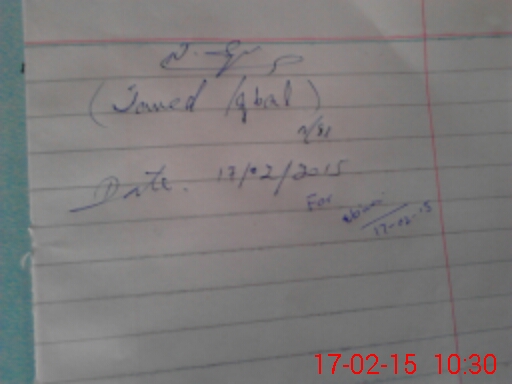 (Javed Iqbal)
Date. 17/02/2015
For
17-02-15
17-02-15 10:30